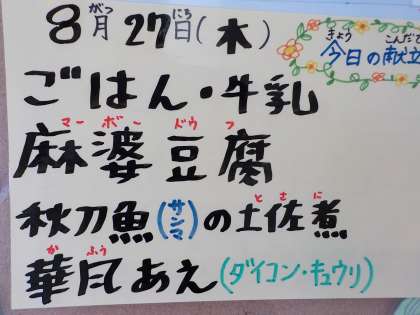 8月27日(木)
がつ にち
きょう こんだて
今日の献立
ごはん・牛乳
マーボー ドウフ
麻婆豆腐
サンマ とさに
秋刀魚(サンマ)の土佐煮
かふう
華風あえ(ダイコン・キュウリ)